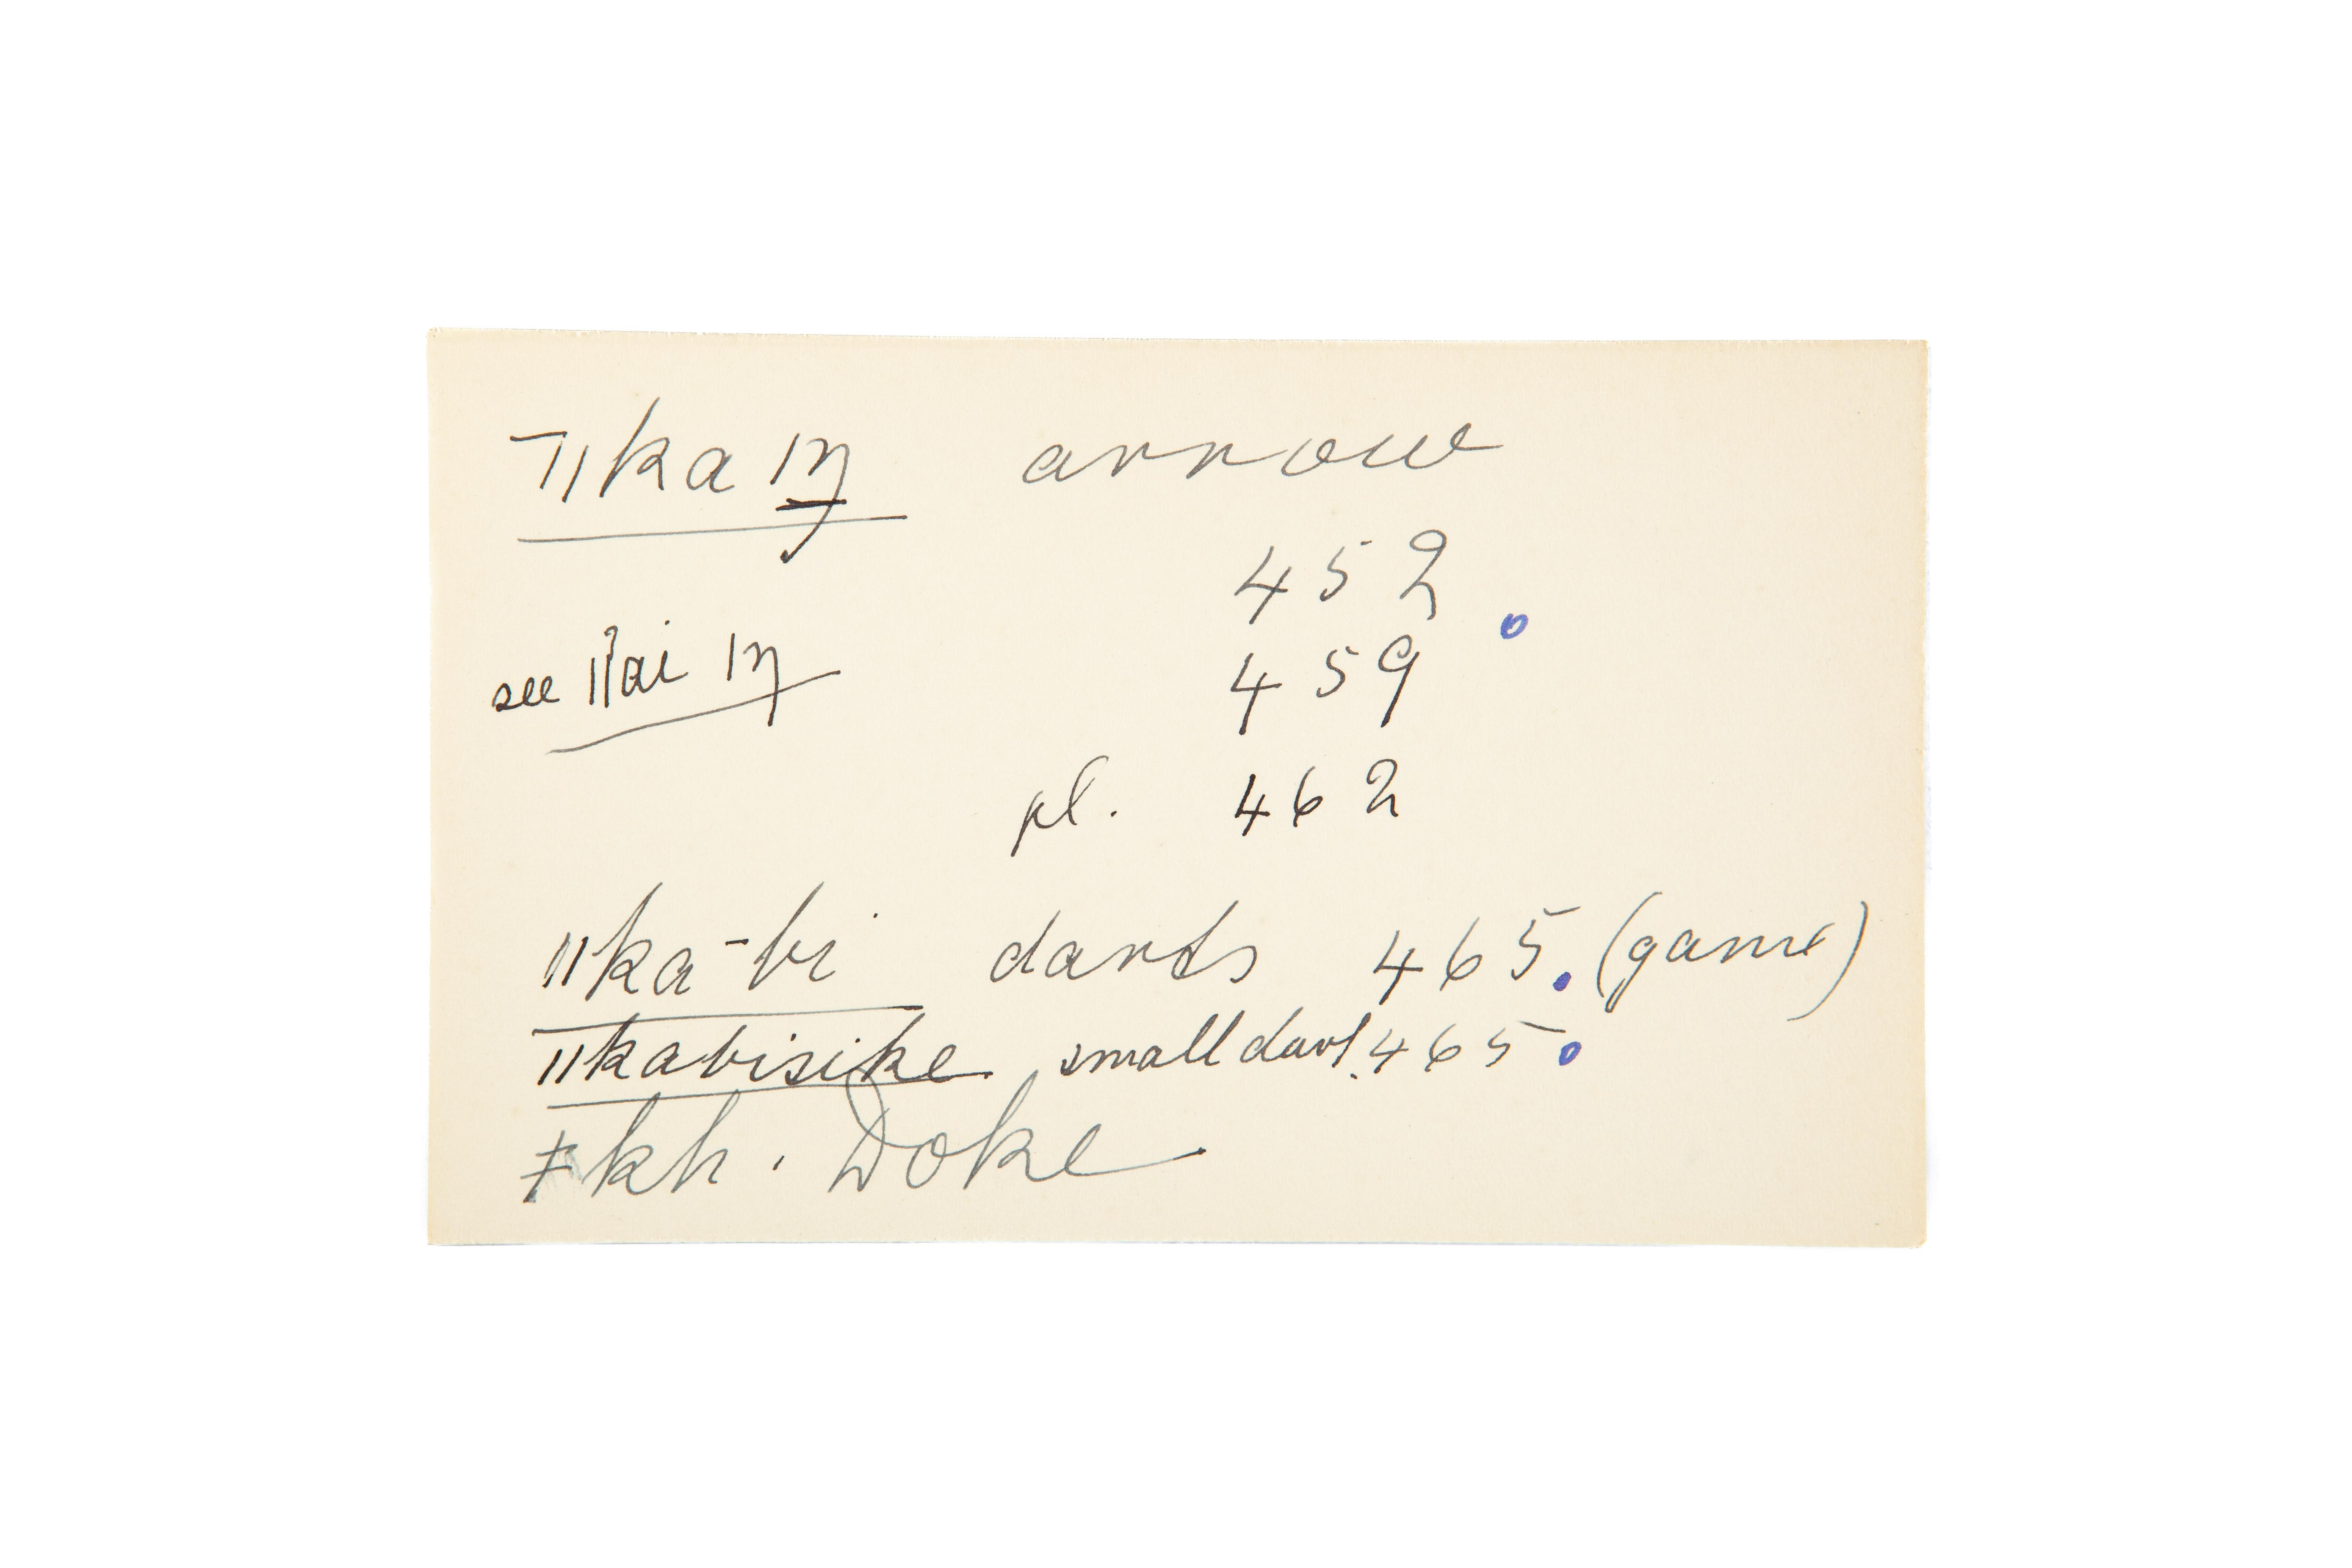 ‾ǁka ıŋ arrow
452
459
see ǁˀai ıŋ
pl. 462
ǁka-bi darts 465. (game)
ǁkabisike small dart. 465
ǂkh. Doke